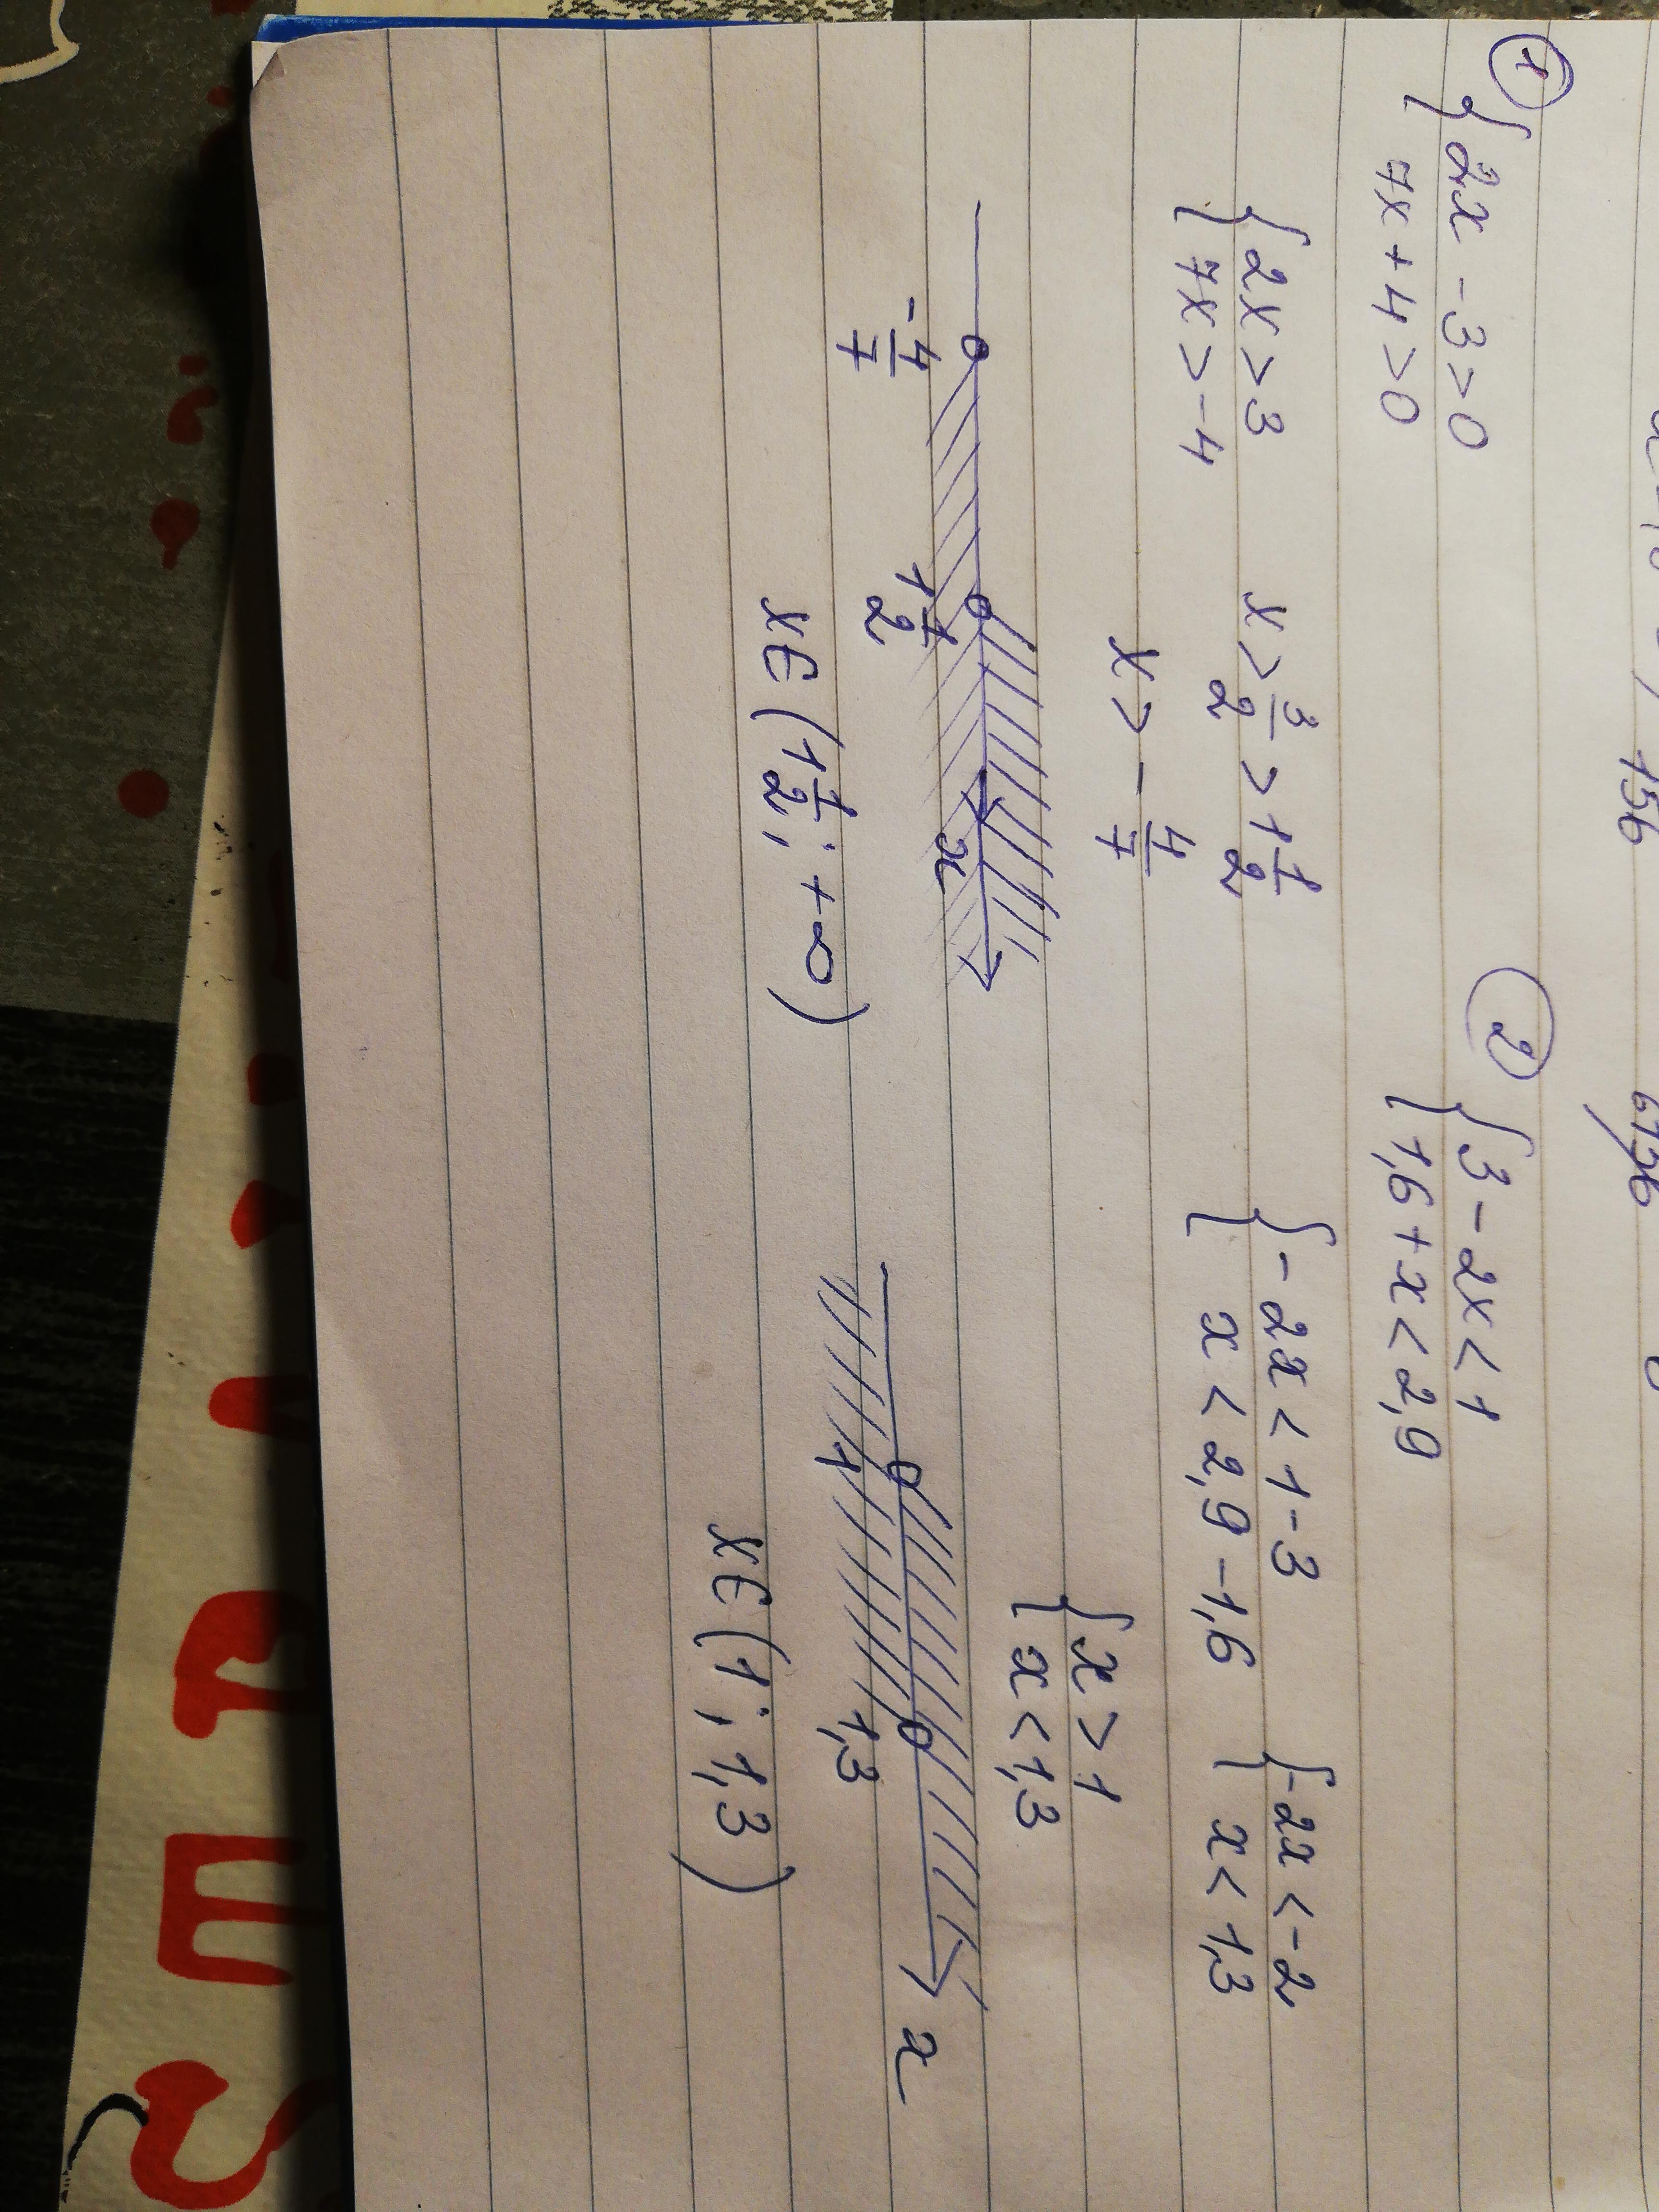 156
6156
① { 2x - 3 > 0
7x + 4 > 0
{ 2x > 3
7x > -4
x > 3/2 > 1 1/2
x > - 4/7
- 4/7
1 1/2
x
x ∈ (1 1/2; +∞)
② { 3 - 2x < 1
1,6 + x < 2,9
{ -2x < 1 - 3
x < 2,9 - 1,6
{ -2x < -2
x < 1,3
{ x > 1
x < 1,3
1
1,3
x
x ∈ (1; 1,3)